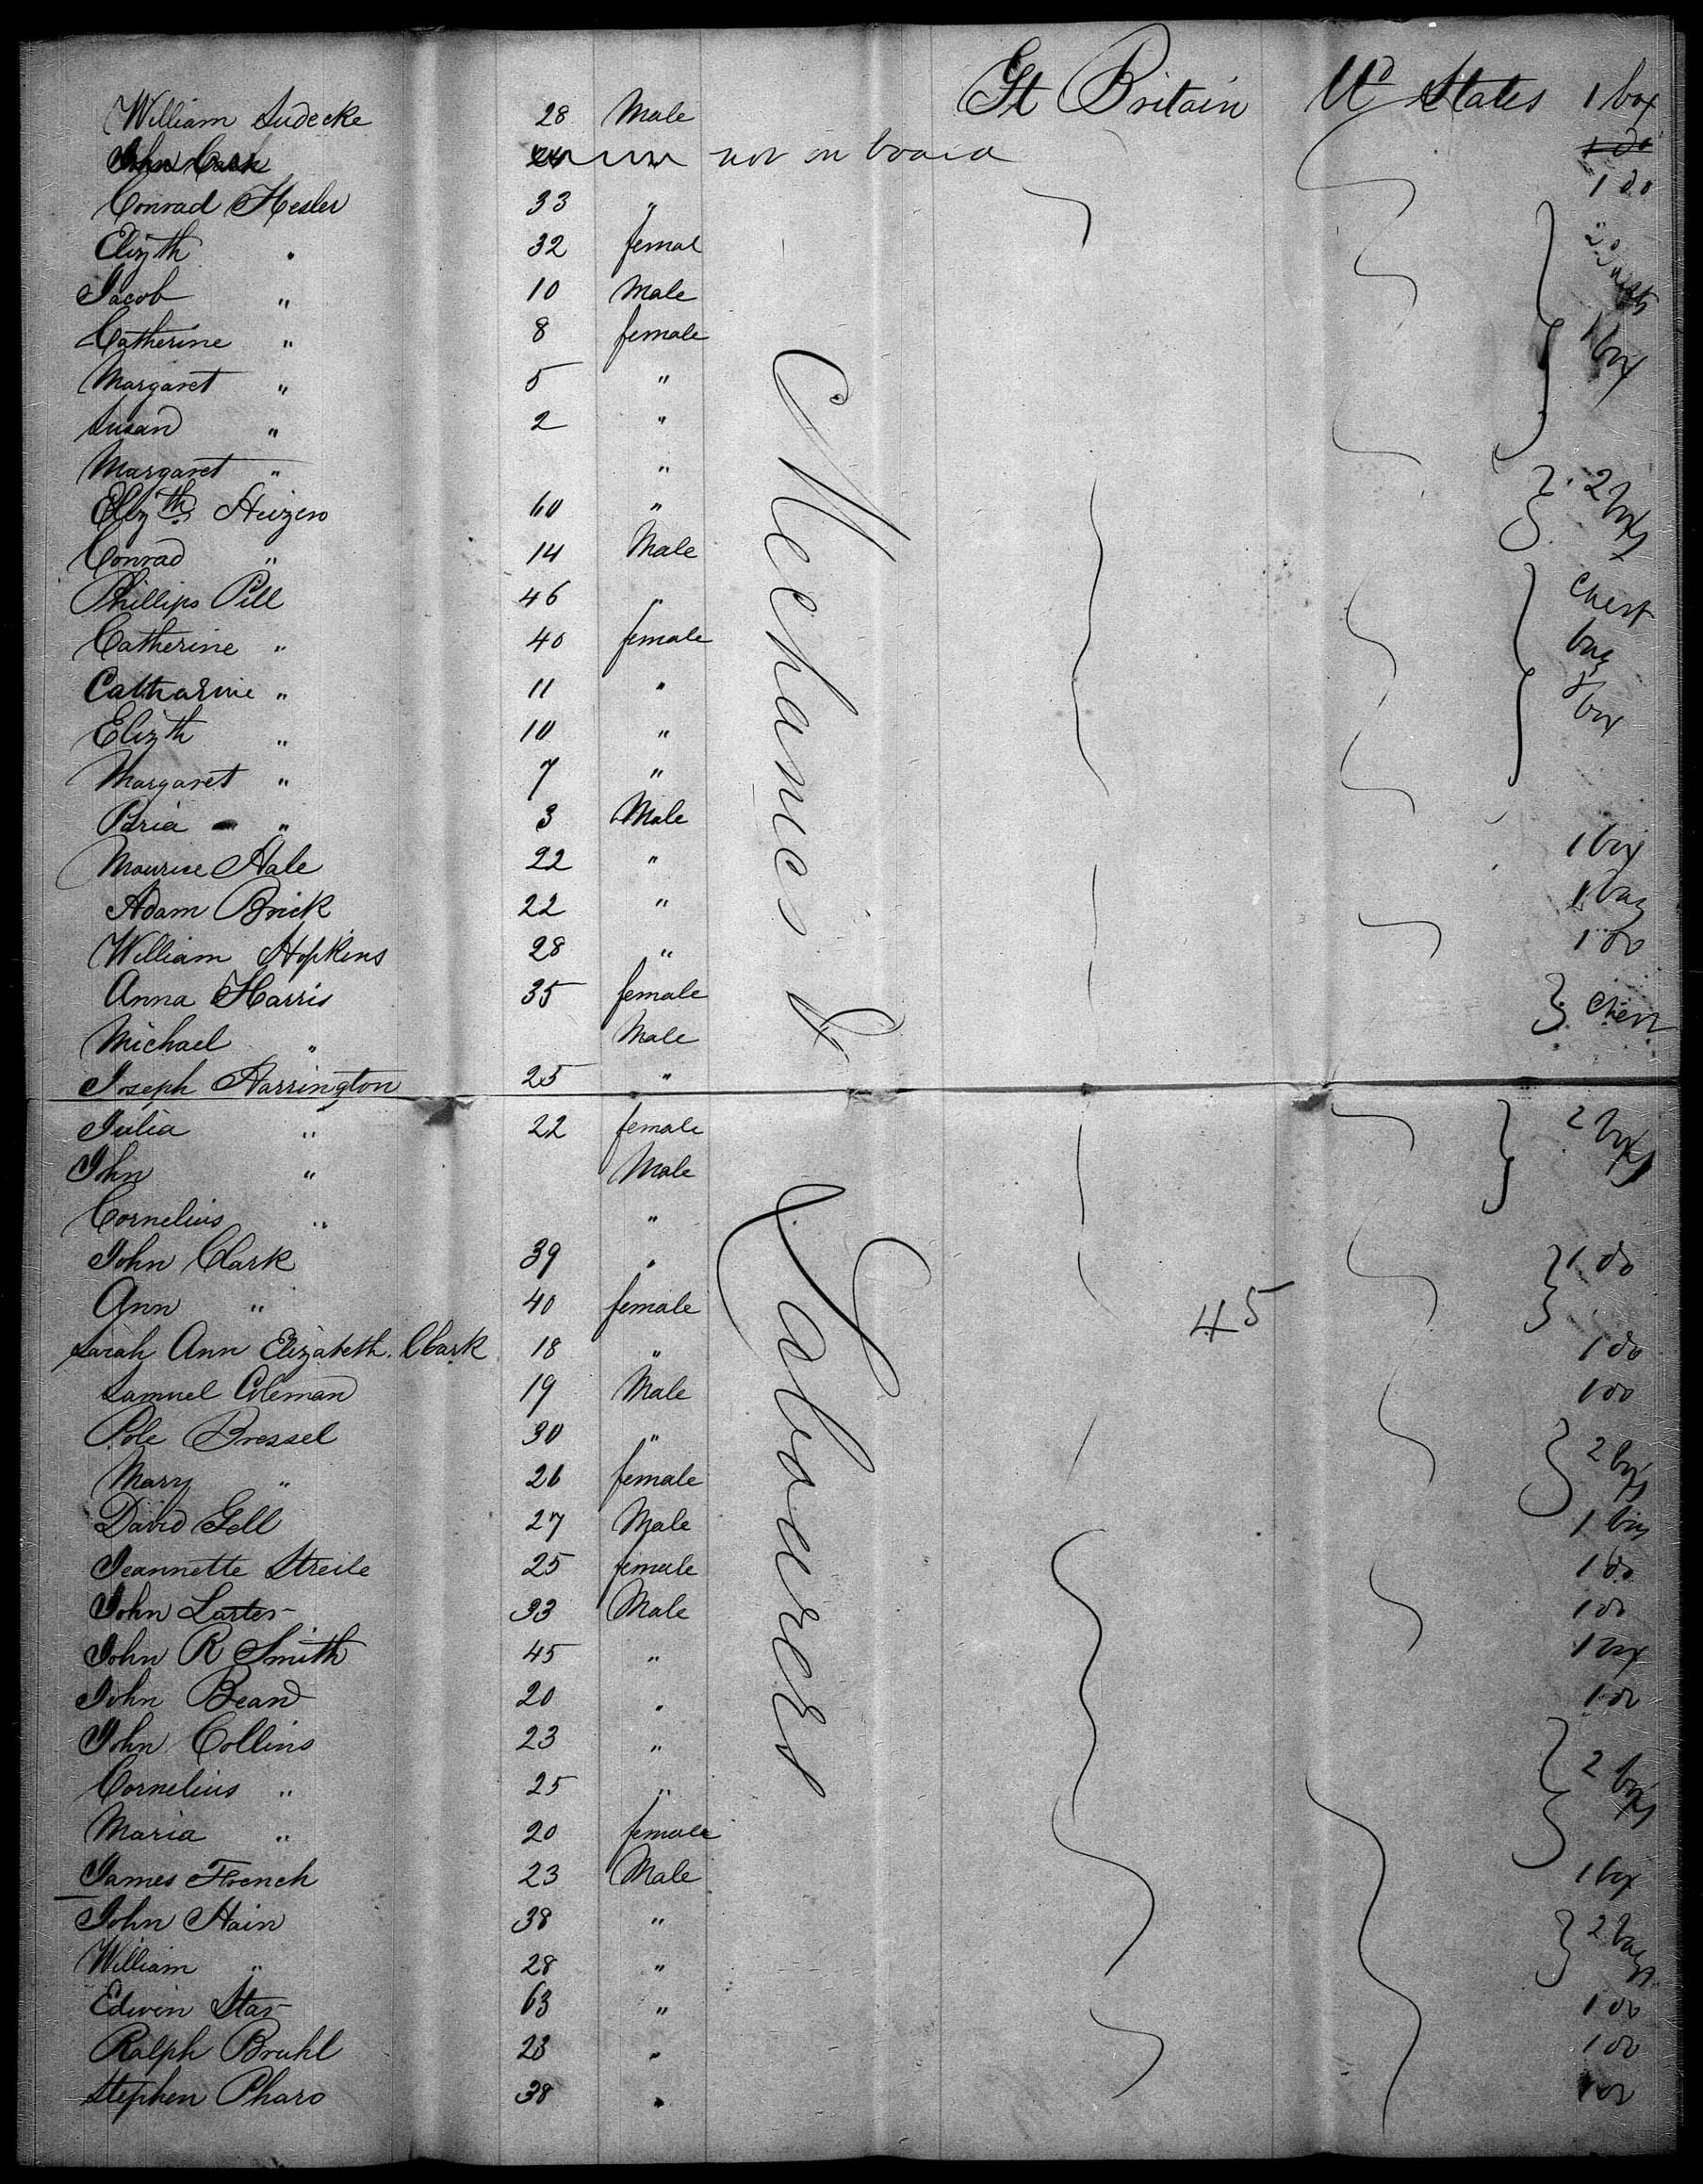 William Sudecke 28 Male Gt Britain Ud States 1 box
John Cash 24 not on board 1 do
Conrad Hesler 33 " 1 do
Elizth " 32 femal
Jacob " 10 Male
Catherine " 8 female 1 box
Margaret " 5 "
Susan " 2 "
Margaret " "
Elizth Heizen 60 " 2 boxes
Conrad " 14 Male
Phillips Pill 46 " Chest
Catherine " 40 female bag
Catharine " 11 " & box
Elizth " 10 "
Margaret " 7 "
Paria " 3 Male
Maurice Hale 22 " 1 box
Adam Brick 22 " 1 bag
William Hopkins 28 " 1 do
Anna Harris 35 female Chest
Michael " Male
Joseph Harrington 25 "
Julia " 22 female 2 boxes
John " Male
Cornelius " "
John Clark 39 " 1 do
Ann " 40 female 45
Sarah Ann Elizabeth Clark 18 " 1 do
Samuel Coleman 19 Male 1 do
Pole Bressel 30 "
Mary " 26 female 2 boxes
David Gell 27 Male 1 box
Jeannette Streile 25 female 1 do
John Larter 33 Male 1 do
John R Smith 45 " 1 box
John Beand 20 " 1 do
John Collins 23 "
Cornelius " 25 " 2 boxes
Maria " 20 female
James French 23 Male 1 box
John Hain 38 " 2 bags
William " 28 "
Edwin Star 63 " 1 do
Ralph Bruhl 23 " 1 do
Stephen Pharo 38 " 1 do
Mechanics & Labourers